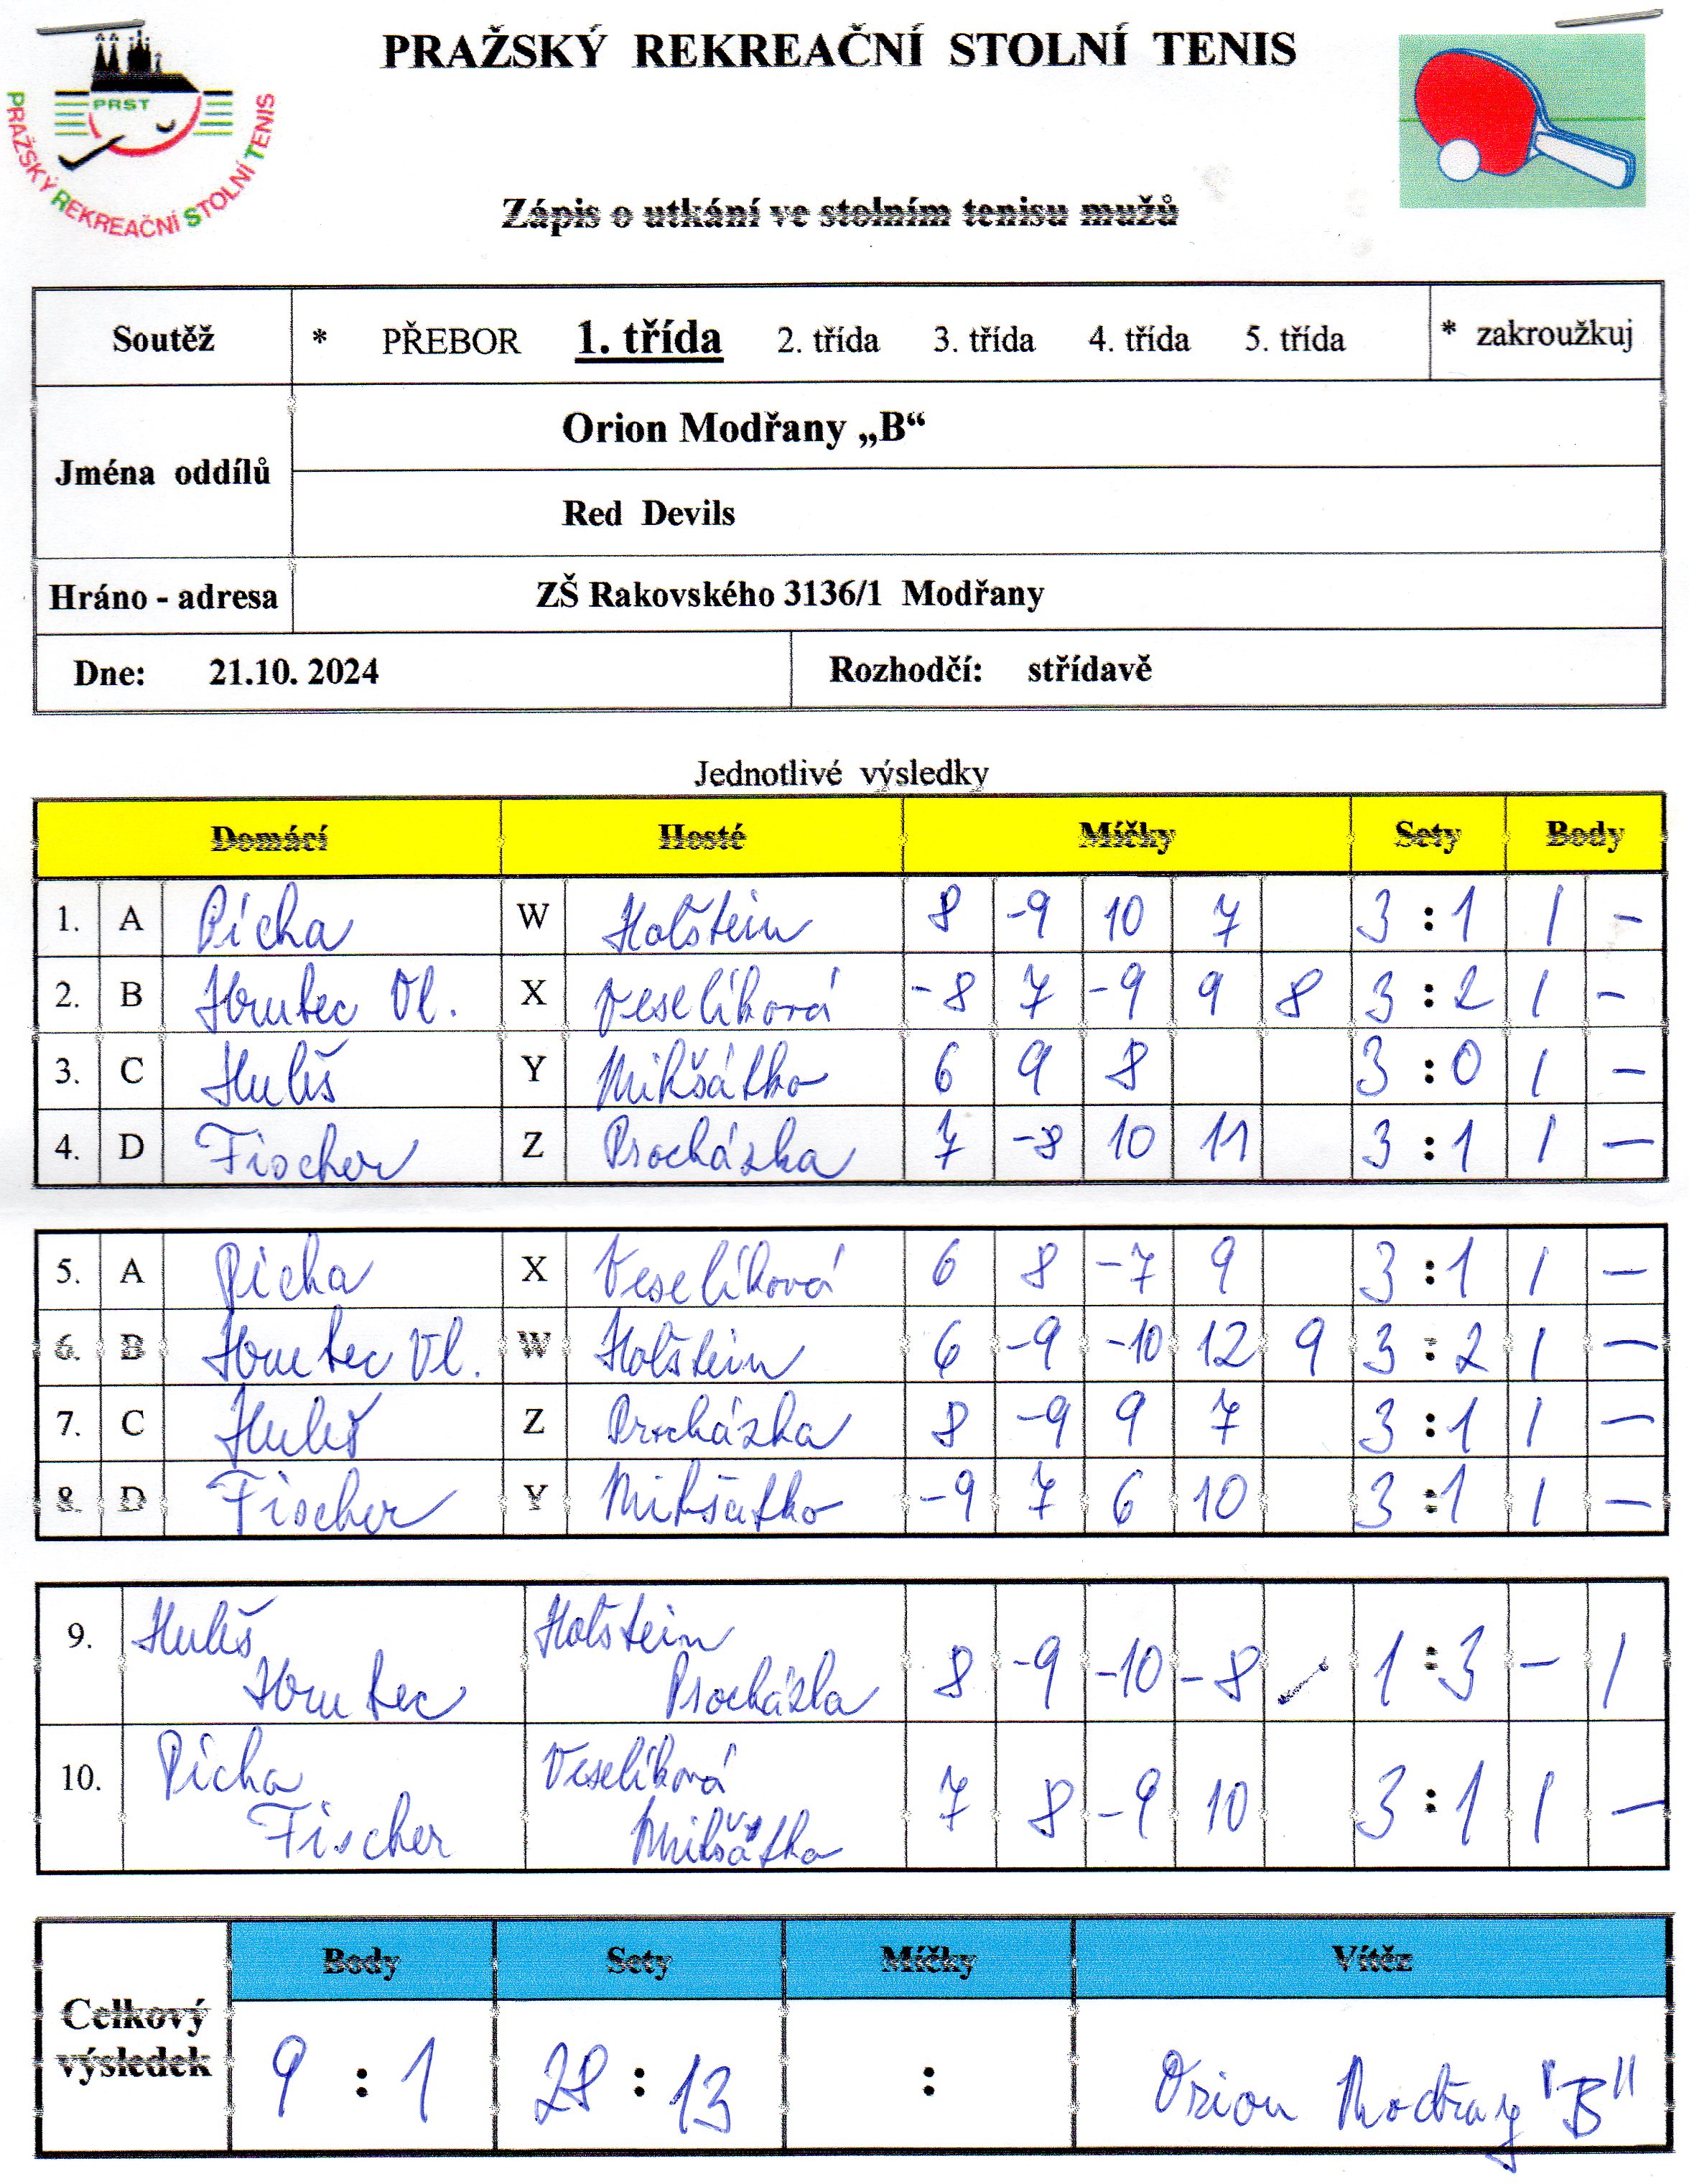 PRAŽSKÝ REKREAČNÍ STOLNÍ TENIS
PRST
PRAŽSKÝ REKREAČNÍ STOLNÍ TENIS
Zápis o utkání ve stolním tenisu mužů
Soutěž * PŘEBOR 1. třída 2. třída 3. třída 4. třída 5. třída * zakroužkuj
Jména oddílů
Orion Modřany „B“
Red Devils
Hráno - adresa ZŠ Rakovského 3136/1 Modřany
Dne: 21.10. 2024 Rozhodčí: střídavě
Jednotlivé výsledky
Domácí Hosté Míčky Sety Body
1. A Pícha W Holštein 8 -9 10 7 3 : 1 1 -
2. B Hrutec Vl. X Veselíková -8 7 -9 9 8 3 : 2 1 -
3. C Huliš Y Mikšátko 6 9 8 3 : 0 1 -
4. D Fischer Z Procházka 7 -8 10 11 3 : 1 1 -
5. A Pícha X Veselíková 6 8 -7 9 3 : 1 1 -
6. B Hrutec Vl. W Holštein 6 -9 -10 12 9 3 : 2 1 -
7. C Huliš Z Procházka 8 -9 9 7 3 : 1 1 -
8. D Fischer Y Mikšátko -9 7 6 10 3 : 1 1 -
9. Huliš Holštein
Hrutec Procházka 8 -9 -10 -8 1 : 3 - 1
10. Pícha Veselíková
Fischer Mikšátko 7 8 -9 10 3 : 1 1 -
Body Sety Míčky Vítěz
Celkový výsledek 9 : 1 28 : 13 : Orion Modřany "B"